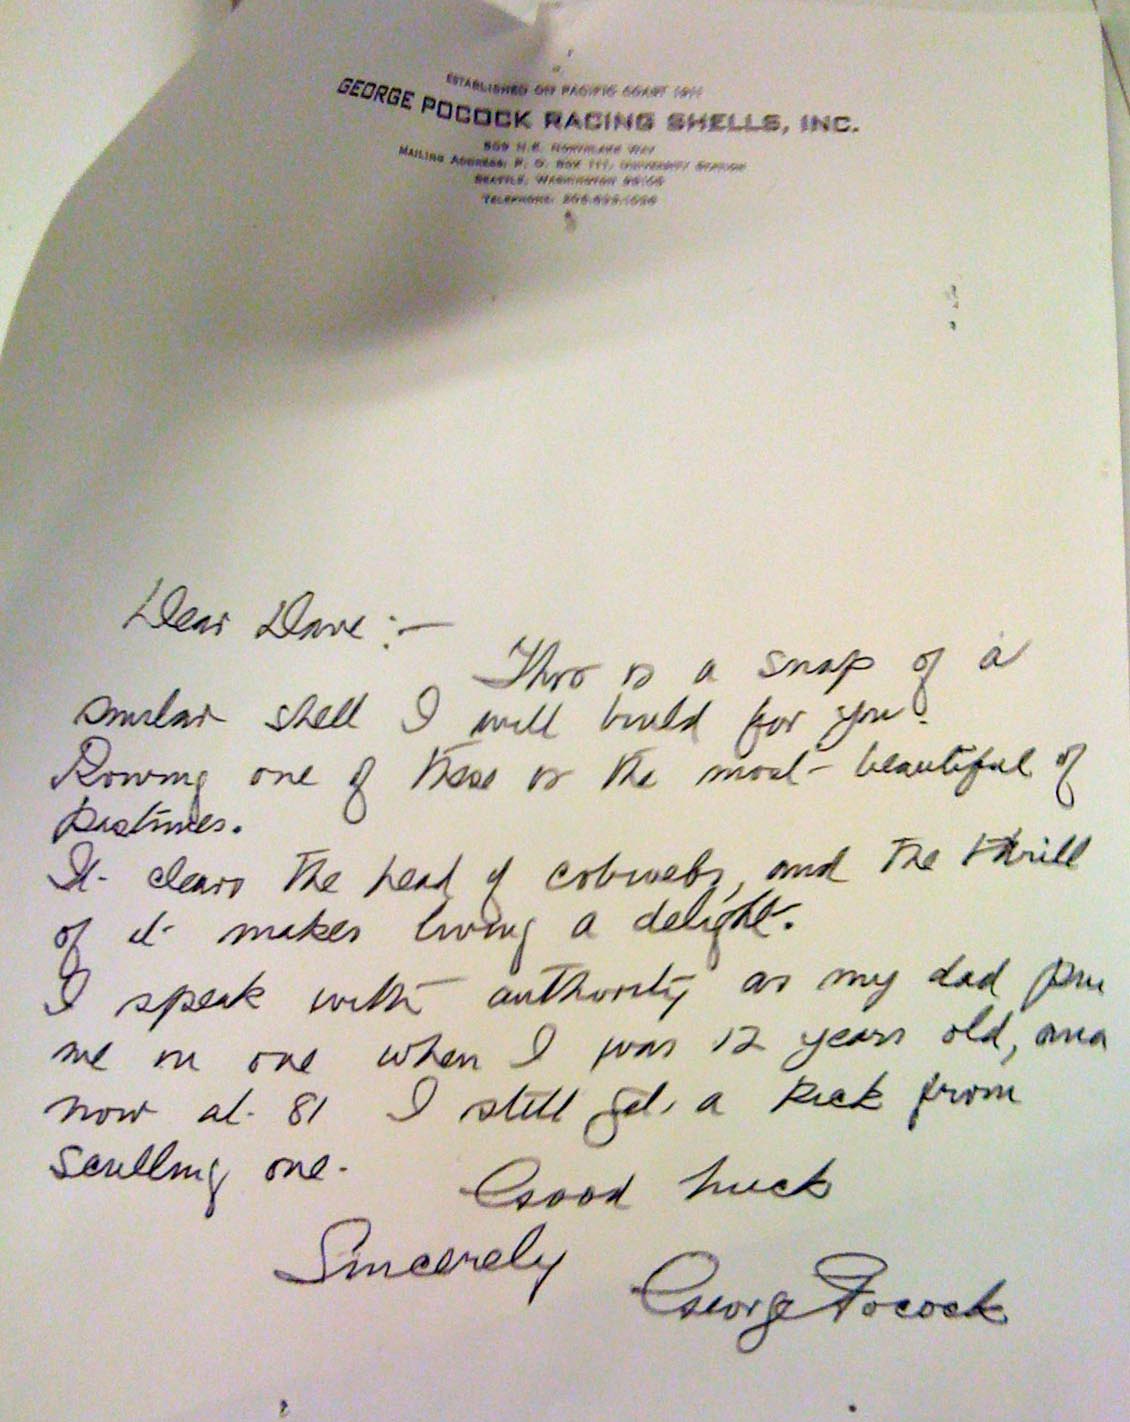 ESTABLISHED ON PACIFIC COAST 1911
GEORGE POCOCK RACING SHELLS, INC.
509 N.E. NORTHLAKE WAY
MAILING ADDRESS: P. O. BOX 111, UNIVERSITY STATION
SEATTLE, WASHINGTON 98105
TELEPHONE:
Dear Dave :-
This is a snap of a
similar shell I will build for you.
Rowing one of these is the most beautiful of
pastimes.
It clears the head of cobwebs, and the thrill
of it makes living a delight.
I speak with authority as my dad pu
me in one when I was 12 years old, and
now at 81 I still get a kick from
sculling one.
Good Luck
Sincerely
George Pocock